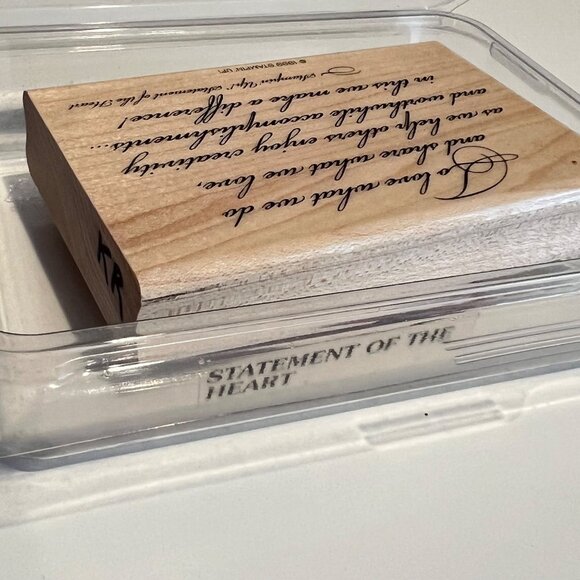 To love what we do
and share what we love,
as we help others enjoy creativity
and worthwhile accomplishments...
in this we make a difference!
Stampin' Up! Statement of the Heart
© 1999 STAMPIN' UP!
KR
STATEMENT OF THE
HEART